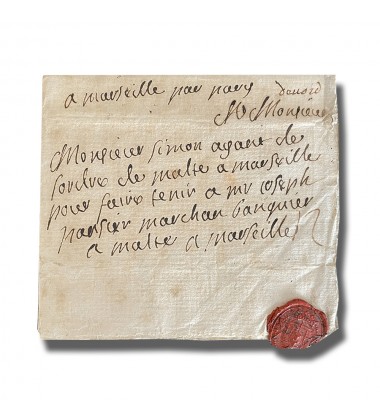 a marseille par pary
A Monsieur
Monsieur simon agant de
lordre de malte a marseille
pour faire tenir a mr joseph
marchan banquier
a malte a marseille